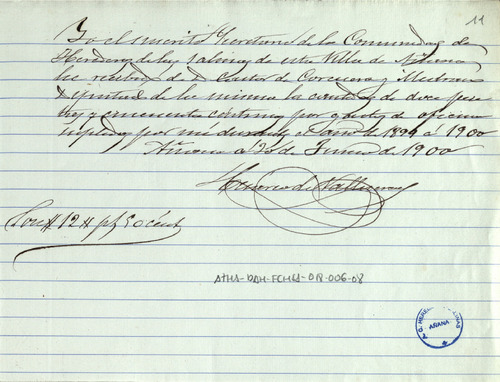 11
Yo el infrascrito Secretario de la Comunidad de
Herederos de las salinas de esta Villa de Añana
he recibido de D. Castor de Corcuera y
Diputado de la misma la cantidad de doce pese
tas y cincuenta céntimos por gastos de oficina
suplidos por mi durante el año de 1899 á 1900
Añana á 25 de Junio de 1900
Son # 12 # pts 50 cént
ATHA-DAH-FCHSA-018-006-08
AÑANA